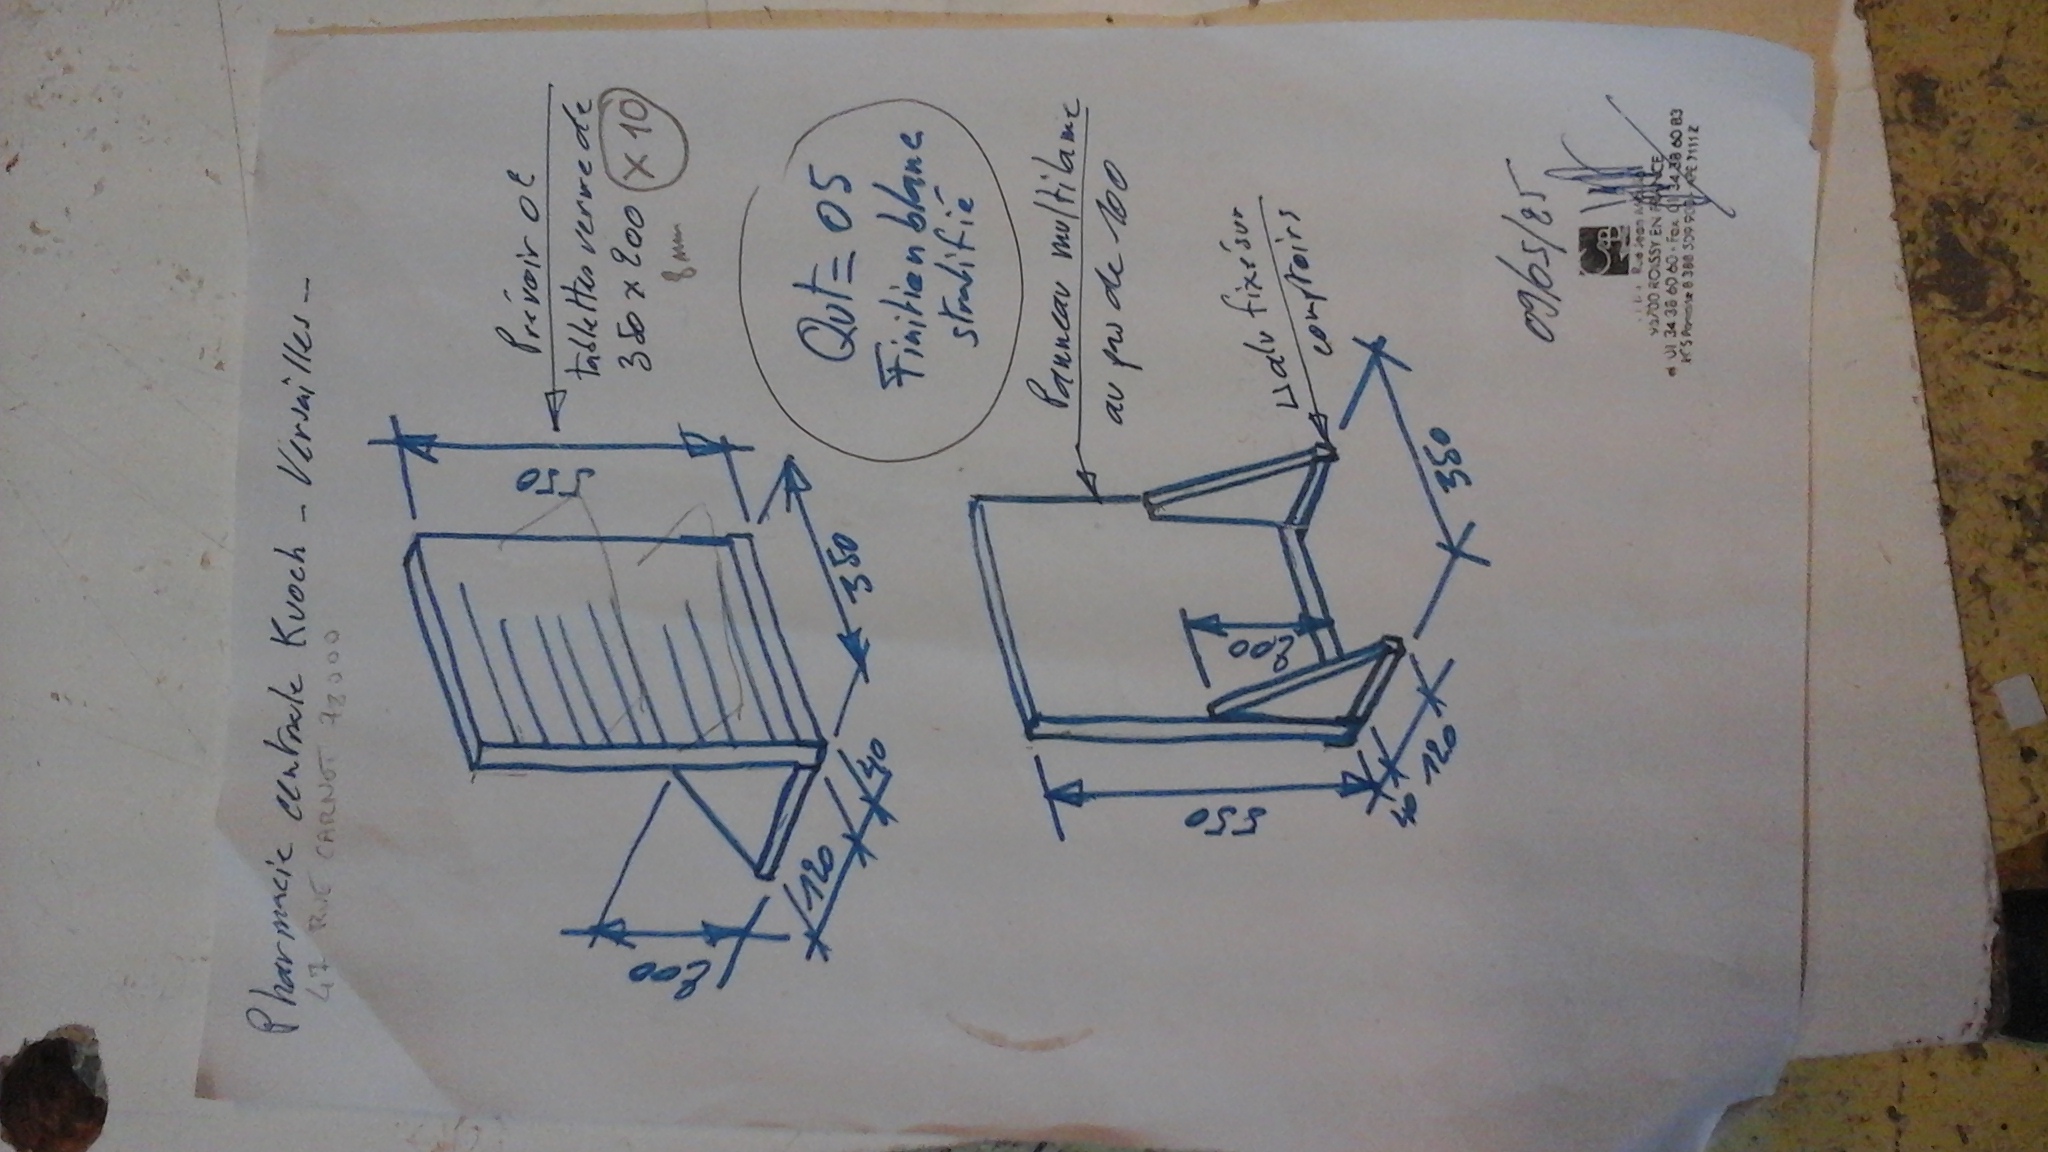 Pharmacie centrale Kuoch - Versailles -
47 RUE CARNOT 78000
Prévoir 02
tablettes verre de
350 x 200 x 10
8 mm
550
350
40
120
200
Qut = 05
Finition blanc
stratifié
Panneau multilame
au pas de 100
à fixé sur
comptoirs
200
550
40
120
350
09/05/25
Rue Jean
ROISSY EN FRANCE
01 34 38 60 60 - Fax 01 34 38 60 83